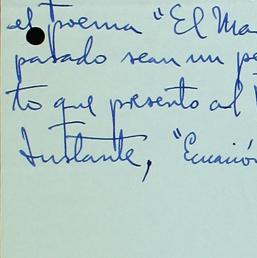 el poema "El Ma
pasado sean un pe
to que presento al
Instante, "Ecuación